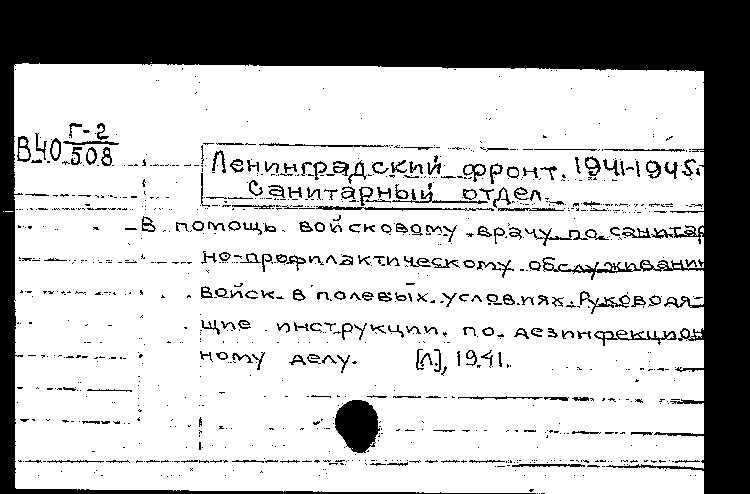 В40 Г-2/508
Ленинградский фронт. 1941-1945г.
Санитарный отдел.
В помощь войсковому врачу по санитар
но-профилактическому обслуживанию
войск в полевых условиях. Руководя-
щие инструкции по дезинфекцион
ному делу. [Л], 1941.